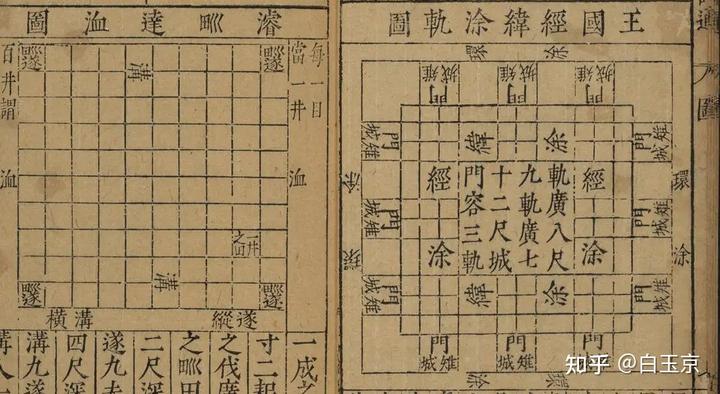 王國經緯涂軌圖
環涂
城雉
門
城雉
門
城雉
門
環涂
城雉
門
城雉
門
城雉
門
經涂
緯涂
軌廣八尺
九軌廣七
十二尺城
門容三軌
緯涂
經涂
門
城雉
門
城雉
門
城雉
環涂
門
城雉
門
城雉
門
城雉
環涂
濬甽達洫圖
每一目
當一井
洫
遂
溝
遂
一井之田
遂
溝
遂
百井謂
洫
縱遂
橫溝
一成之
寸二耜
之伐廣
之甽田
二尺深
遂九夫
四尺深
溝九遂
知乎 @白玉京